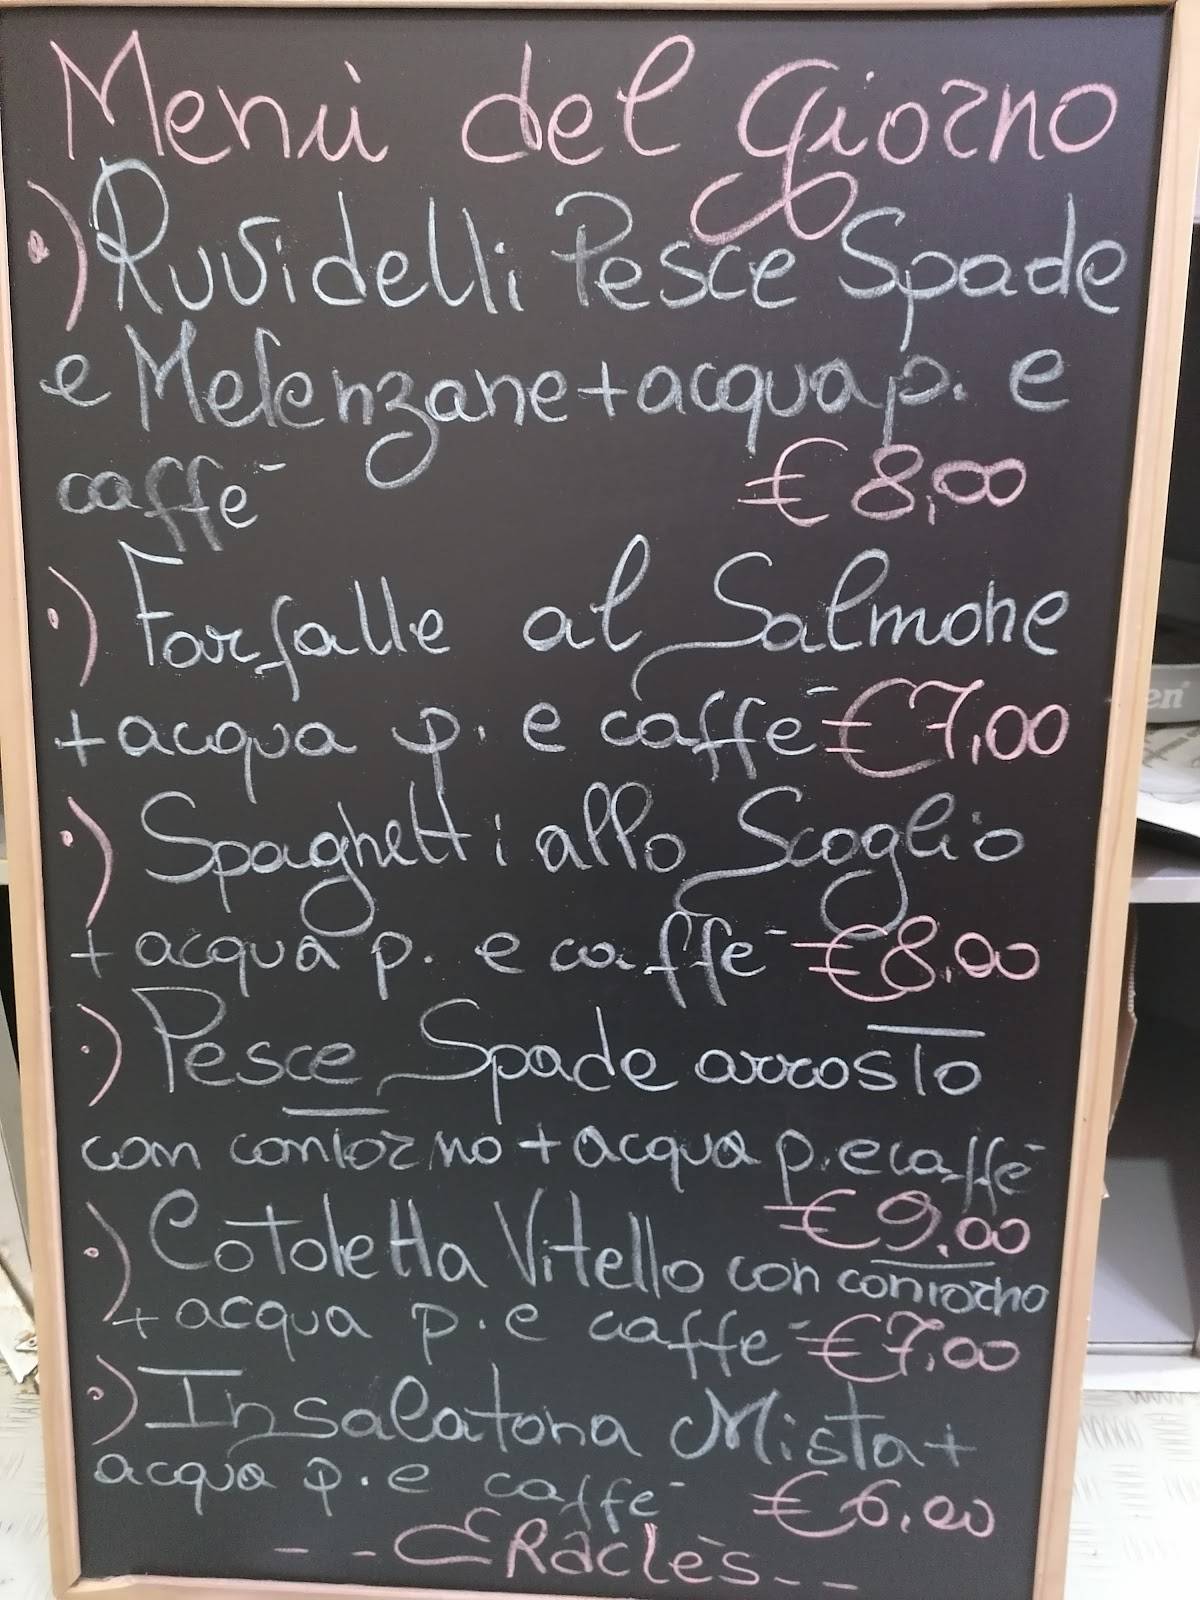 Menù del Giorno
•) Ruvidelli Pesce Spade
e Melenzane + acqua p. e
caffè € 8,00
•) Farfalle al Salmone
+ acqua p. e caffè € 7,00
•) Spaghetti allo Scoglio
+ acqua p. e caffè € 8,00
•) Pesce Spade arrosto
con contorno + acqua p. e caffè
€ 9,00
•) Cotoletta Vitello con contorno
+ acqua p. e caffè € 7,00
•) Insalatona Mista +
acqua p. e caffè € 6,00
-- ERaclès --
en